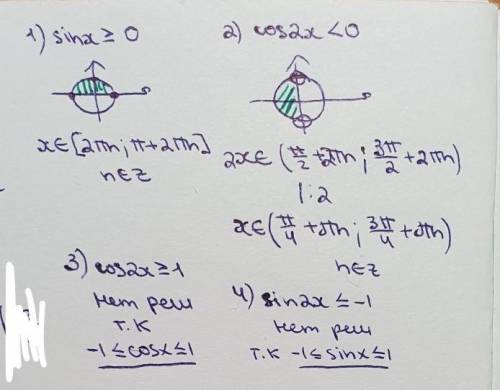 1) sinx ≥ 0
x∈[2πn; π+2πn]
n∈Z
2) cos2x < 0
2x∈(π/2+2πn; 3π/2+2πn)
|:2
x∈(π/4+πn; 3π/4+πn)
n∈Z
3) cos2x ≥ 1
нет реш
т.к
-1 ≤ cosx ≤ 1
4) sin2x ≤ -1
нет реш
т.к -1 ≤ sinx ≤ 1